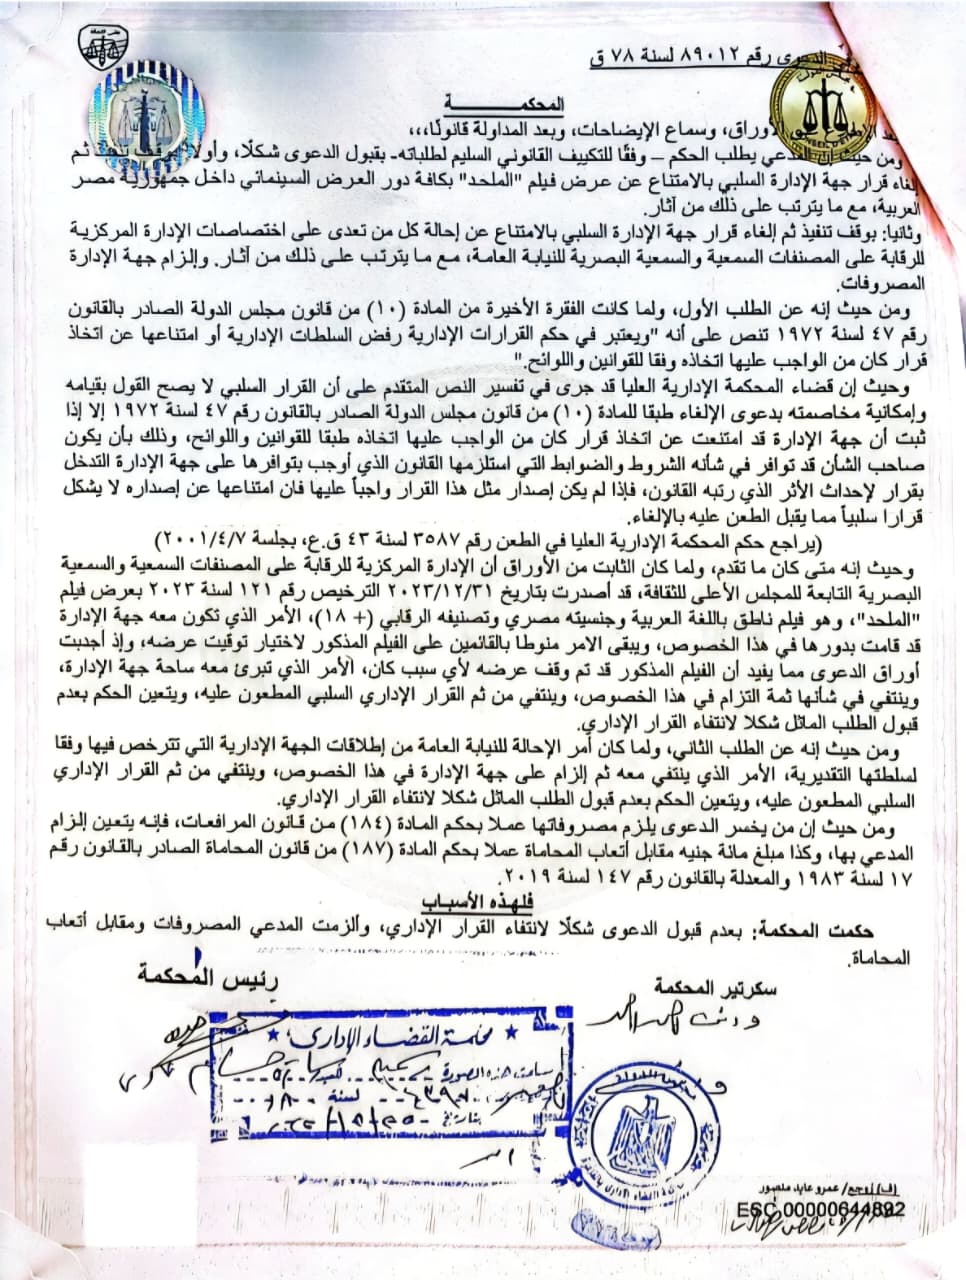 الدعوى رقم ٨٩٠١٢ لسنة ٧٨ ق
المحكمـــــــــة
الأوراق، وسماع الإيضاحات، وبعد المداولة قانونًا،،،
ومن حيث إن المدعي يطلب الحكم – وفقًا للتكييف القانوني السليم لطلباته- بقبول الدعوى شكلًا، وأولًا: بوقف تنفيذ ثم
إلغاء قرار جهة الإدارة السلبي بالامتناع عن عرض فيلم "الملحد" بكافة دور العرض السينمائي داخل جمهورية مصر
العربية، مع ما يترتب على ذلك من آثار.
وثانيا: بوقف تنفيذ ثم إلغاء قرار جهة الإدارة السلبي بالامتناع عن إحالة كل من تعدى على اختصاصات الإدارة المركزية
للرقابة على المصنفات السمعية والسمعية البصرية للنيابة العامة، مع ما يترتب على ذلك من آثار. وإلزام جهة الإدارة
المصروفات.
ومن حيث إنه عن الطلب الأول، ولما كانت الفقرة الأخيرة من المادة (١٠) من قانون مجلس الدولة الصادر بالقانون
رقم ٤٧ لسنة ١٩٧٢ تنص على أنه "ويعتبر في حكم القرارات الإدارية رفض السلطات الإدارية أو امتناعها عن اتخاذ
قرار كان من الواجب عليها اتخاذه وفقا للقوانين واللوائح."
وحيث إن قضاء المحكمة الإدارية العليا قد جرى في تفسير النص المتقدم على أن القرار السلبي لا يصح القول بقيامه
وإمكانية مخاصمته بدعوى الإلغاء طبقا للمادة (١٠) من قانون مجلس الدولة الصادر بالقانون رقم ٤٧ لسنة ١٩٧٢ إلا إذا
ثبت أن جهة الإدارة قد امتنعت عن اتخاذ قرار كان من الواجب عليها اتخاذه طبقا للقوانين واللوائح، وذلك بأن يكون
صاحب الشأن قد توافر في شأنه الشروط والضوابط التي استلزمها القانون الذي أوجب بتوافرها على جهة الإدارة التدخل
بقرار لإحداث الأثر الذي رتبه القانون، فإذا لم يكن إصدار مثل هذا القرار واجباً عليها فان امتناعها عن إصداره لا يشكل
قرارا سلبياً مما يقبل الطعن عليه بالإلغاء.
(يراجع حكم المحكمة الإدارية العليا في الطعن رقم ٣٥٨٧ لسنة ٤٣ ق.ع، بجلسة ٢٠٠١/٤/٧)
وحيث إنه متى كان ما تقدم، ولما كان الثابت من الأوراق أن الإدارة المركزية للرقابة على المصنفات السمعية والسمعية
البصرية التابعة للمجلس الأعلى للثقافة، قد أصدرت بتاريخ ٢٠٢٣/١٢/٣١ الترخيص رقم ١٢١ لسنة ٢٠٢٣ بعرض فيلم
"الملحد"، وهو فيلم ناطق باللغة العربية وجنسيته مصري وتصنيفه الرقابي (+ ١٨)، الأمر الذي تكون معه جهة الإدارة
قد قامت بدورها في هذا الخصوص، ويبقى الامر منوطا بالقائمين على الفيلم المذكور لاختيار توقيت عرضه، وإذ أجدبت
أوراق الدعوى مما يفيد أن الفيلم المذكور قد تم وقف عرضه لأي سبب كان، الأمر الذي تبرئ معه ساحة جهة الإدارة،
وينتفي في شأنها ثمة التزام في هذا الخصوص، وينتفي من ثم القرار الإداري السلبي المطعون عليه، ويتعين الحكم بعدم
قبول الطلب الماثل شكلا لانتفاء القرار الإداري.
ومن حيث إنه عن الطلب الثاني، ولما كان أمر الإحالة للنيابة العامة من إطلاقات الجهة الإدارية التي تترخص فيها وفقا
لسلطتها التقديرية، الأمر الذي ينتفي معه ثم إلزام على جهة الإدارة في هذا الخصوص، وينتفي من ثم القرار الإداري
السلبي المطعون عليه، ويتعين الحكم بعدم قبول الطلب الماثل شكلا لانتفاء القرار الإداري.
ومن حيث إن من يخسر الدعوى يلزم مصروفاتها عملا بحكم المادة (١٨٤) من قانون المرافعات، فإنه يتعين إلزام
المدعي بها، وكذا مبلغ مائة جنيه مقابل أتعاب المحاماة عملا بحكم المادة (١٨٧) من قانون المحاماة الصادر بالقانون رقم
١٧ لسنة ١٩٨٣ والمعدلة بالقانون رقم ١٤٧ لسنة ٢٠١٩.
فلهذه الأسباب
حكمت المحكمة: بعدم قبول الدعوى شكلًا لانتفاء القرار الإداري، وألزمت المدعي المصروفات ومقابل أتعاب
المحاماة.
سكرتير المحكمة
رئيس المحكمة
محكمة القضاء الإداري
سلمت هذه الصورة
لسنة
بتاريخ
ESC 00000644892